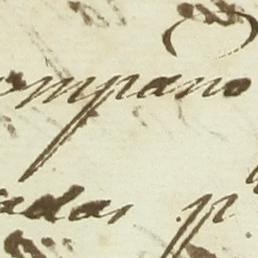 ompaño
adas p.